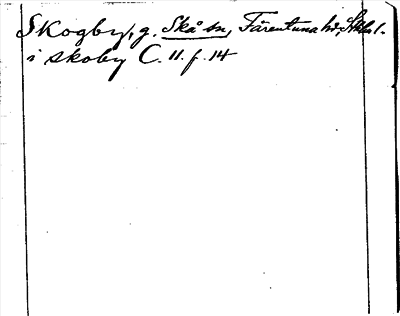 Skogby, g. Skå sn, Färentuna hd, Sthlm l.
i skoby C. 11. f. 14